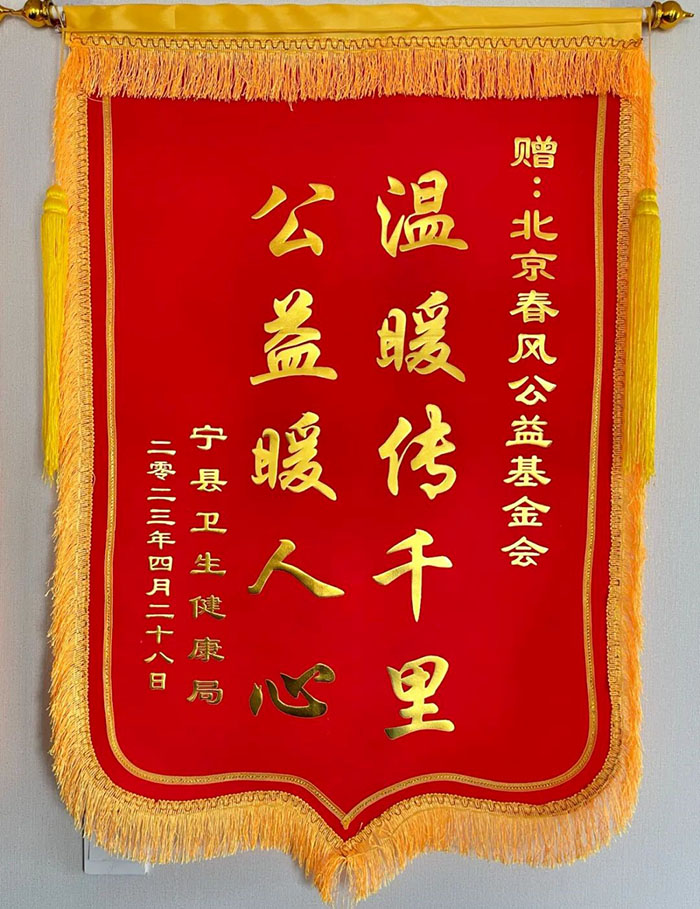 赠:北京春风公益基金会
温暖传千里
公益暖人心
宁县卫生健康局
二零二三年四月二十八日